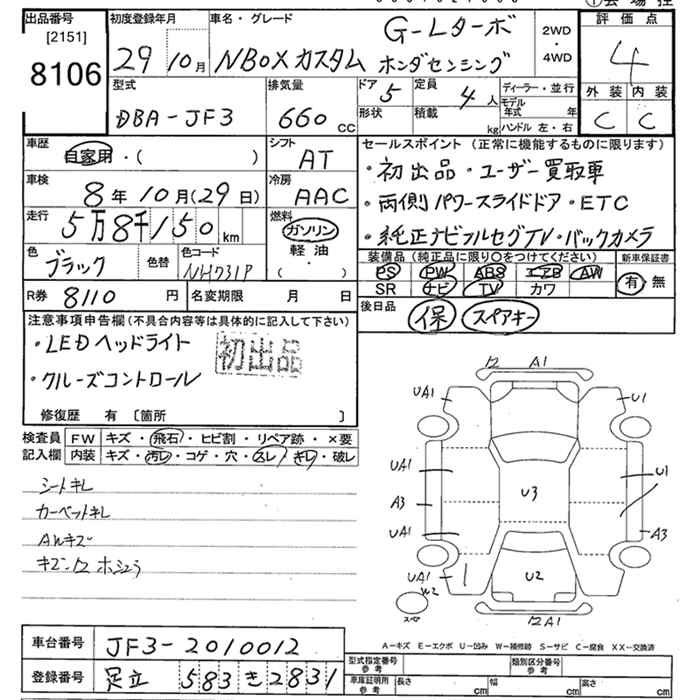 出品番号 初度登録年月 車名・グレード 評価点
[2151] 8106
29年 10月 NBOXカスタム G-Lターボ ホンダセンシング 2WD・4WD 4
型式 排気量 ドア 定員 ディーラー・並行 外装 内装
DBA-JF3 660cc 5 4人 モデル年式 年 C C
形状 積載 kg ハンドル 左・右
車歴 シフト セールスポイント (正常に機能するものに限ります)
自家用・( ) AT ・初出品・ユーザー買取車
車検 冷房
8年10月(29日) AAC ・両側パワースライドドア・ETC
走行 燃料
5万8千150km ガソリン ・純正ナビフルセグTV・バックカメラ
軽油
色 色替 色コード
ブラック NH731P
装備品 (純正品に限り○をつけてください) 新車保証書
PS PW ABS エアB AW 有・無
SR ナビ TV カワ
R券 8110円 名変期限 月 日
後日品 保 スペアキー
注意事項申告欄(不具合内容等は具体的に記入して下さい)
・LEDヘッドライト 初出品
・クルーズコントロール
修復歴 有 〔箇所 〕
検査員 FW キズ・飛石・ヒビ割・リペア跡・×要
記入欄 内装 キズ・汚レ・コゲ・穴・スレ・キレ・破レ
シートキレ
カーペットキレ
AWキズ
12 A1
UA1 U1
UA1 U1
A3 U3
UA1 A3
UA1 W2 U2
スペア 12A1
A-キズ E-エクボ U-凹み W-補修跡 S-サビ C-腐食 XX-交換済
車台番号 JF3-2010012
型式指定番号 参考 類別区分番号 参考
登録番号 足立 583 き 2831
車庫証明用 参考 長さ cm 幅 cm 高さ cm